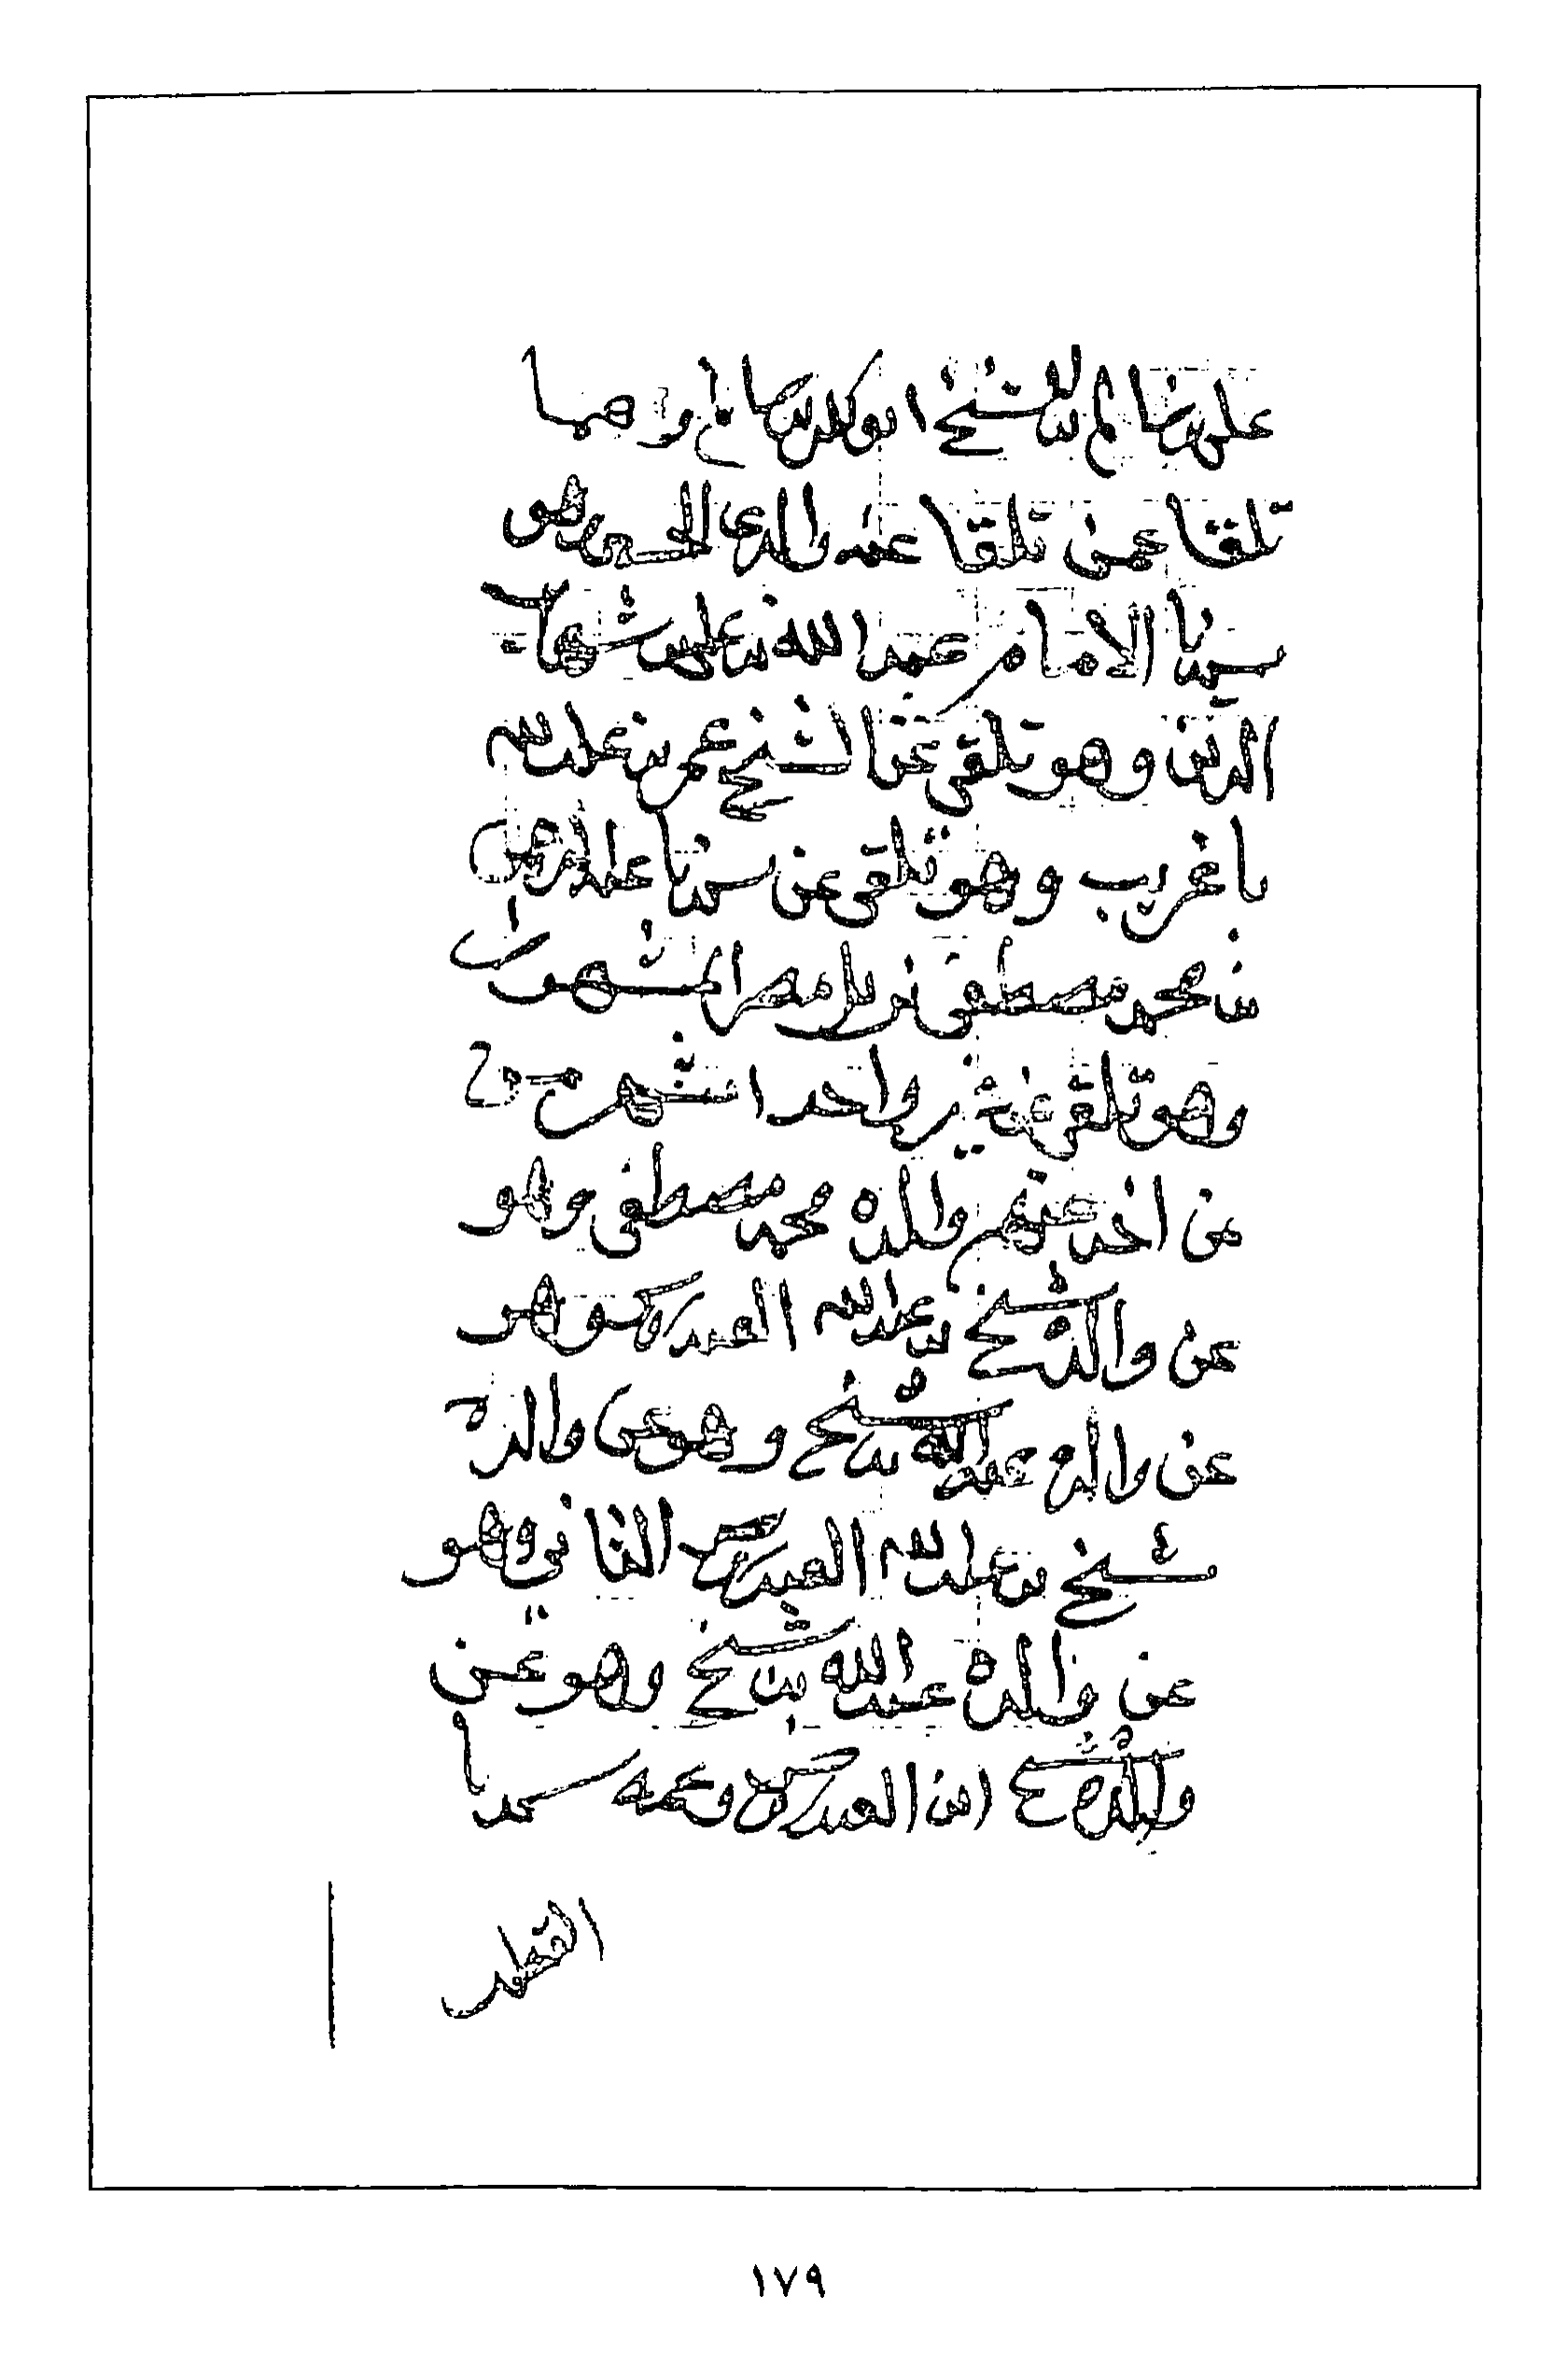 علي بن سالم بن الشيخ ابو بكر بن سالم وهما
تلقا عمن تلقا عنه والدي الحسين وهو
سيدنا الامام عبد الله بن علي بن شهاب
الدين وهو تلقى عن الشيخ عمر بن عبد الله
باغريب وهو تلقى عن سيدنا عبد الرحمن
بن محمد مصطفى نزيل مصر المشهور
وهو تلقى عن غير واحد اشهر من
من اخذ عنهم والده محمد مصطفى وهو
عن والده شيخ بن عبد الله العيدروس وهو
عن والده عبد الله بن شيخ وهو عن والده
شيخ بن عبد الله العيدروس الثاني وهو
عن والده عبد الله بن شيخ وهو عن
والده شيخ ابن العيدروس وعمه سيدنا
القطب
١٧٩